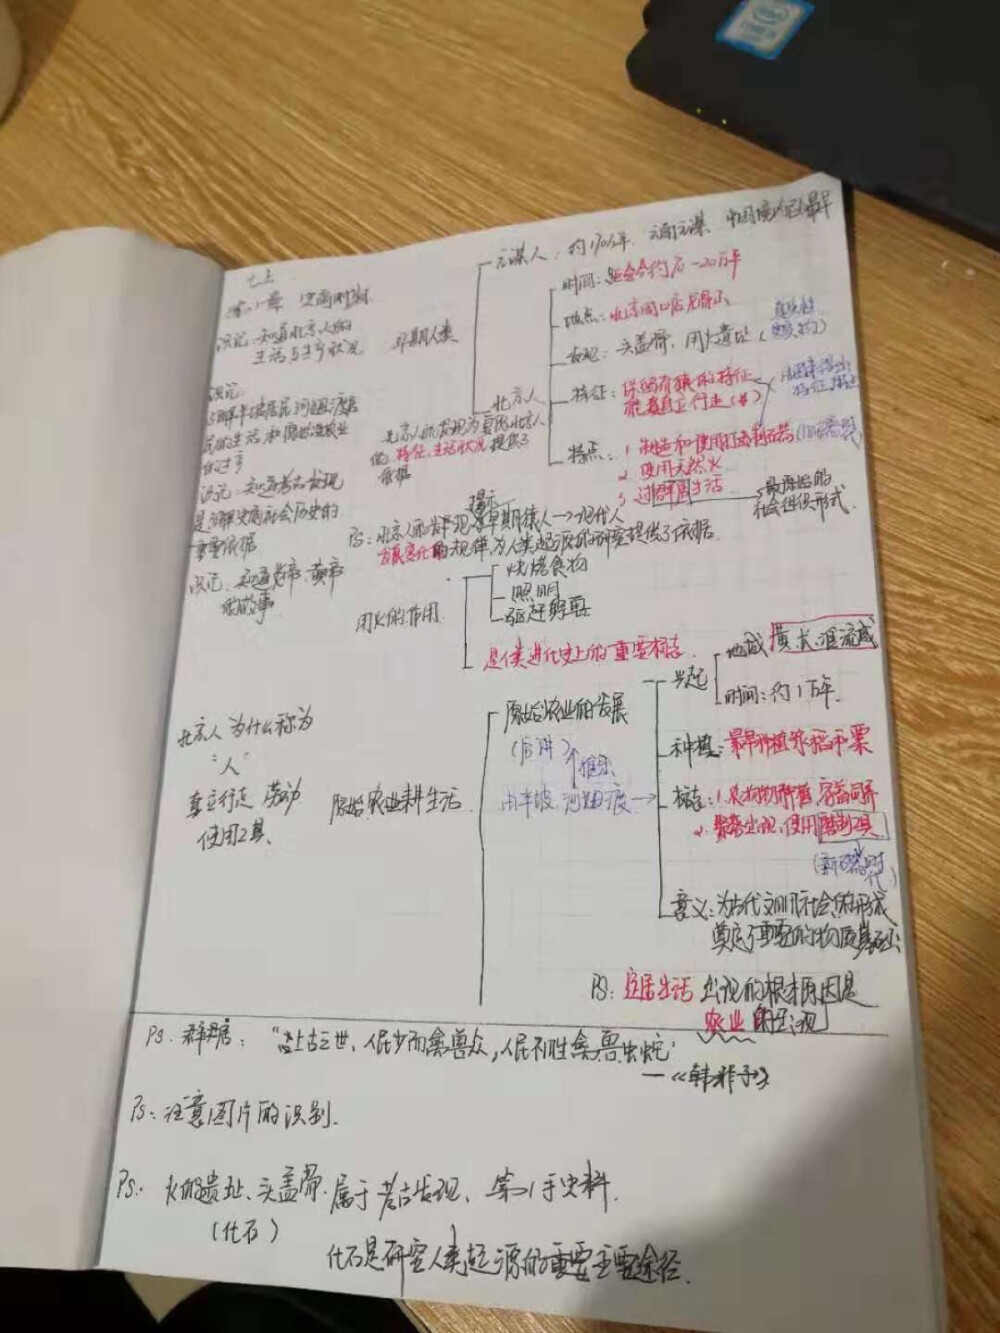 七上
第1章 史前时期
识记：知道北京人的
生活与生产状况
识记：
了解半坡居民、河姆渡居
民的生活和原始农业
的过
识记：知道考古发现
是了解史前社会历史的
重要依据
识记：知道炎帝、黄帝
的故事
早期人类
元谋人：约170万年 云南元谋 中国境内已知最早
北京人
时间：距今约70-20万年
地点：北京周口店龙骨山
发现：头盖骨，用火遗址（
特征：保留有猿的特征
能直立行走
特点：1 制造和使用打制石器（旧石器
2 使用天然火
3 过群居生活
最原始的
社会组织形式
北京人的发现为复原北京人
特征、生活状况提供了
依据
揭示
Ps：北京人的发现 早期猿人→现代人
发展变化的规律，为人类起源的研究提供了依据
用火的作用
烧烤食物
照明
驱赶野兽
是人类进化史上的重要标志
北京人为什么称为
“人”
直立行走 劳动
使用工具
原始农耕生活
原始农业的发展
由半坡 河姆渡→
兴起
地域 黄、长、淮流域
时间：约1万年
种植：最早种植水稻和粟
标志：1.农作物种植、家畜饲养
2.聚落出现、使用磨制工具
（新石器时
代）
意义：为古代文明社会的形成
奠定了重要的物质基础
PS：定居生活出现的根本原因是
农业的出现
PS. 群居：“上古之世，人民少而禽兽众，人民不胜禽兽虫蛇”
—《韩非子》
Ps：注意图片的识别.
Ps：火的遗址、头盖骨属于考古发现、第1手史料.
（化石）
化石是研究人类起源的重要主要途径.